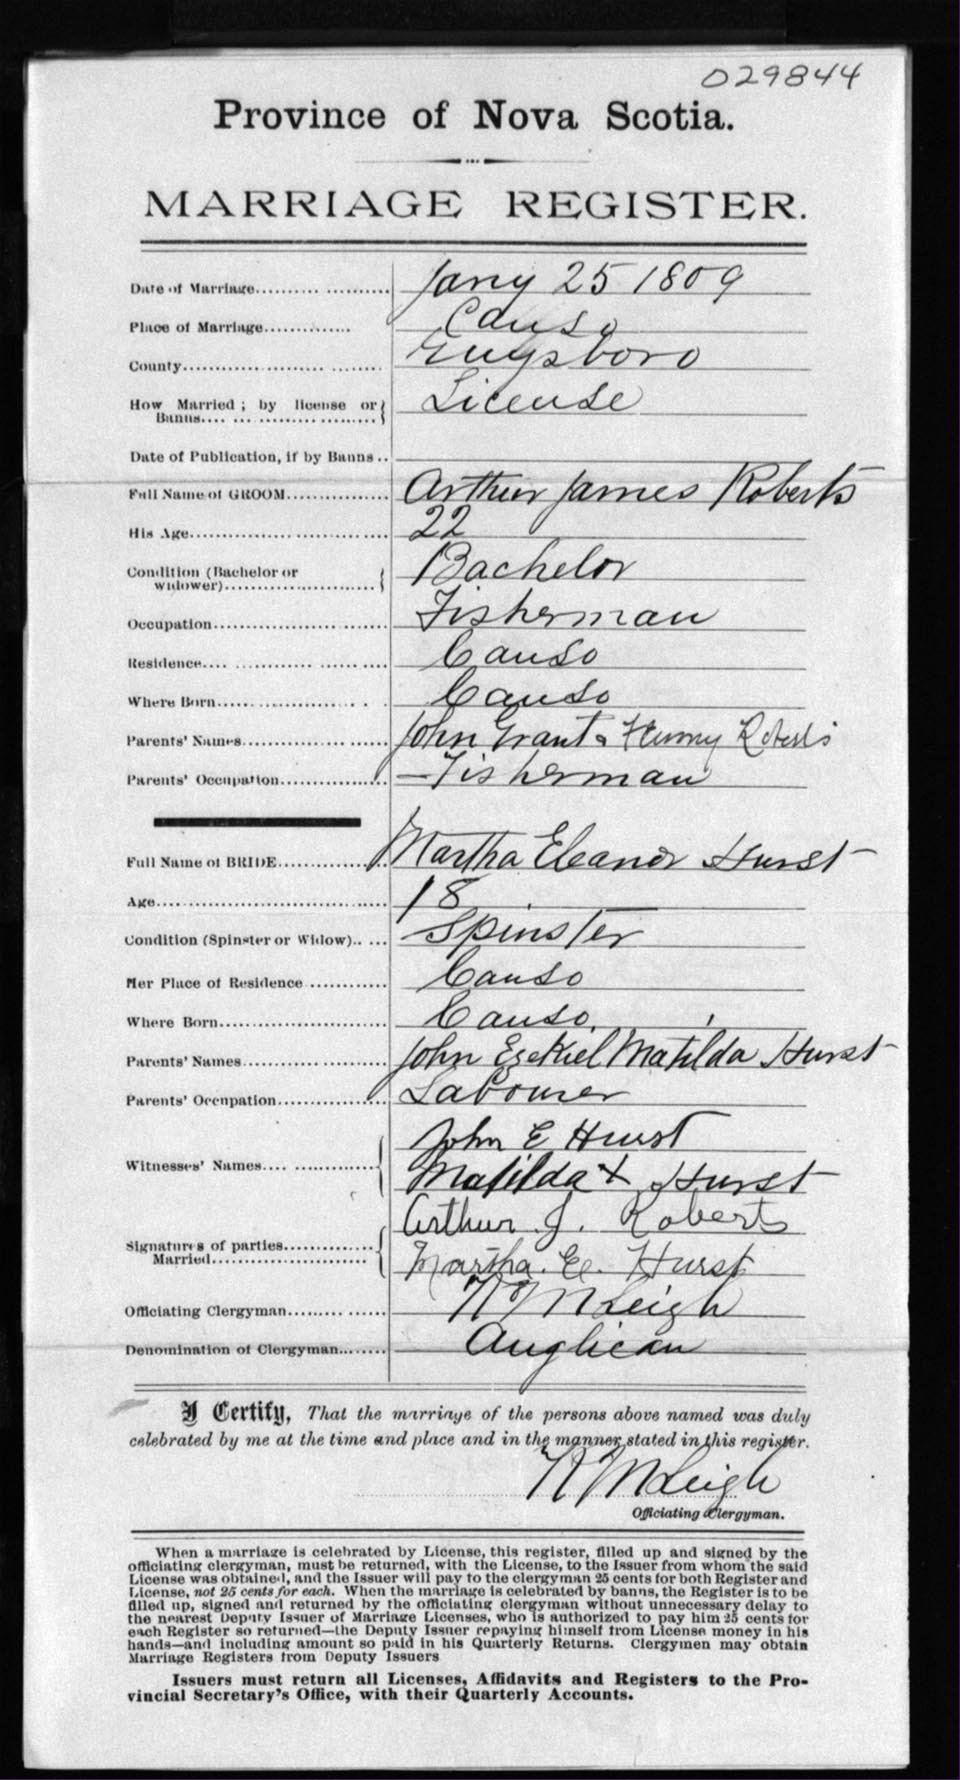 029844
Province of Nova Scotia.
MARRIAGE REGISTER.
Date of Marriage.......... Jany 25 1809
Place of Marriage.............. Canso
County.............................. Guysboro
How Married ; by license or License
Banns.... ... ....................
Date of Publication, if by Banns ..
Full Name of GROOM................ Arthur James Roberts
His Age.............................. 22
Condition (Bachelor or Bachelor
widower)........................
Occupation.......................... Fisherman
Residence.... ...................... Canso
Where Born...................... Canso
Parents' Names...................... John Grant & Roberts
Parents' Occupation................ Fisherman
Full Name of BRIDE.................. Martha Eleanor Hurst
Age.................................. 18
Condition (Spinster or Widow).. .... Spinster
Her Place of Residence ............ Canso
Where Born.......................... Canso
Parents' Names...................... John Ezekiel Matilda Hurst
Parents' Occupation................ Labourer
John E Hurst
Witnesses' Names.... ..............
Matilda X Hurst
Arthur J. Roberts
Signatures of parties..............
Married........................ Martha. El. Hurst
Officiating Clergyman.............. Leigh
Denomination of Clergyman........ Anglican
I Certify, That the marriage of the persons above named was duly
celebrated by me at the time and place and in the manner stated in this register.
Leigh
Officiating Clergyman.
When a marriage is celebrated by License, this register, filled up and signed by the
officiating clergyman, must be returned, with the License, to the Issuer from whom the said
License was obtained, and the Issuer will pay to the clergyman 25 cents for both Register and
License, not 25 cents for each. When the marriage is celebrated by banns, the Register is to be
filled up, signed and returned by the officiating clergyman without unnecessary delay to
the nearest Deputy Issuer of Marriage Licenses, who is authorized to pay him 25 cents for
each Register so returned—the Deputy Issuer repaying himself from License money in his
hands—and including amount so paid in his Quarterly Returns. Clergymen may obtain
Marriage Registers from Deputy Issuers
Issuers must return all Licenses, Affidavits and Registers to the Pro-
vincial Secretary's Office, with their Quarterly Accounts.